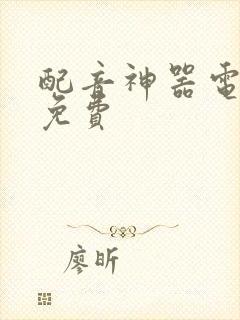 配音神器電
免費
廖昕